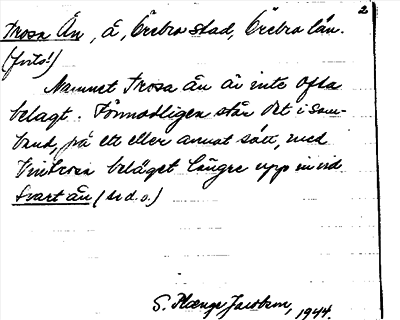 2
Trosa Ån, å, Örebro stad, Örebro län.
(forts!)
Namnet Trosa ån är inte ofta
belagt. Förmodligen står det i sam-
band, på ett eller annat sätt, med
Vintrosa beläget längre upp invid
Svartån (se d.o.)
S. Plænge Jacobson, 1944.